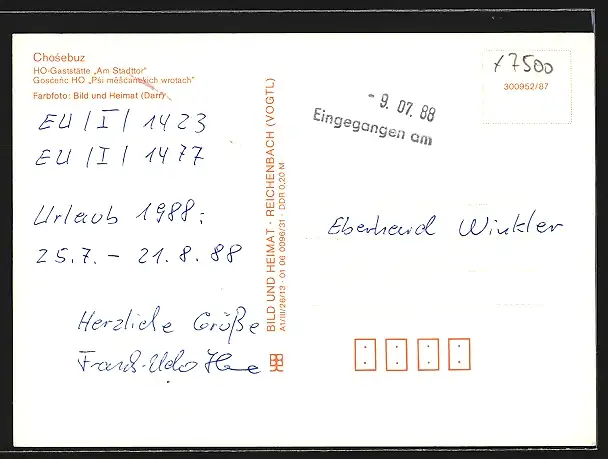 Chośebuz
HO-Gaststätte „Am Stadttor"
Gosćeńc HO „Pśi měšćańskich wrotach"
Farbfoto: Bild und Heimat (Darr)
EU/I/1423
EU/I/1477
Urlaub 1988:
25.7. – 21.8.88
Herzliche Grüße
Frank-Udo
BILD UND HEIMAT · REICHENBACH (VOGTL)
A1/III/26/13 · 01 06 0096/31 · DDR 0,20 M
- 9. 07. 88
Eingegangen am
x7500
300952/87
Eberhard Winkler